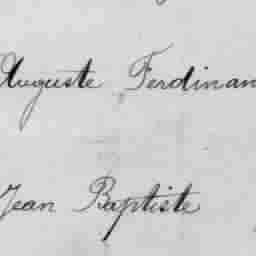 Auguste Ferdinan
Jean Baptiste